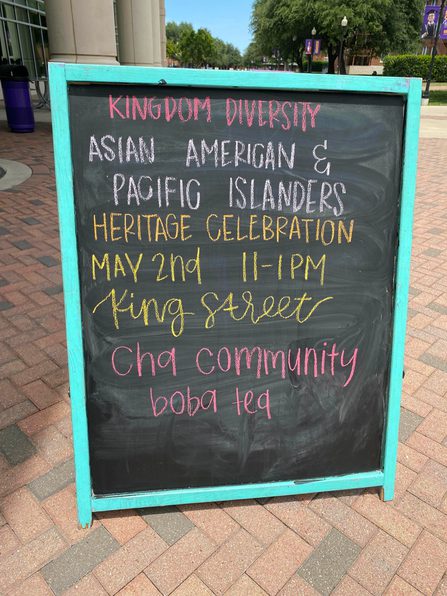 KINGDOM DIVERSITY
ASIAN AMERICAN &
PACIFIC ISLANDERS
HERITAGE CELEBRATION
MAY 2nd 11-1PM
King Street
Cha community
boba tea